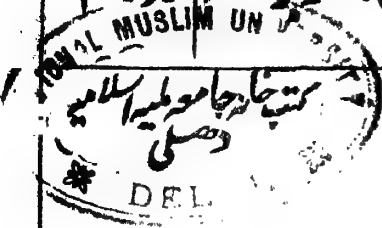 IONAL MUSLIM UN
کتب خانہ جامعہ ملیہ اسلامیہ
دھلی
DEL